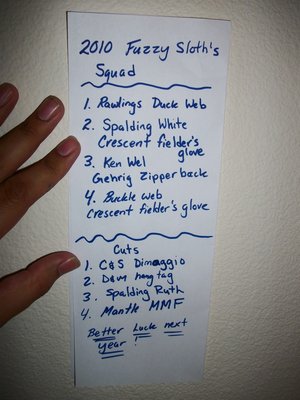 2010 Fuzzy Sloth's
Squad
1. Rawlings Duck Web
2. Spalding White
Crescent fielder's
glove
3. Ken Wel
Gehrig Zipper back
4. Buckle web
Crescent fielder's glove
Cuts
1. C&S Dimaggio
2. D&M hang tag
3. Spalding Ruth
4. Mantle MMF
Better Luck next
year !